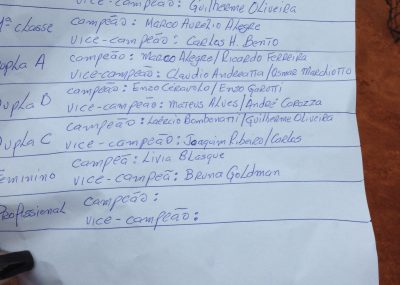 vice-campeão: Guilherme Oliveira
1ª classe campeão: Marco Aurélio Alegre
vice-campeão: Carlos H. Bento
Dupla A campeão: Marco Alegre/Ricardo Ferreira
vice-campeão: Claudio Andreatta/Osmar Marchiotto
Dupla B campeão: Enzo Ceravolo/Enzo Garotti
vice-campeão: Mateus Alves/André Carazza
Dupla C campeão: Laércio Bombonati/Guilherme Oliveira
vice-campeão: Joaquim Ribeiro/Carlos
Feminino campeã: Livia Blasque
vice-campeã: Bruna Goldman
Profissional campeão:
vice-campeão: